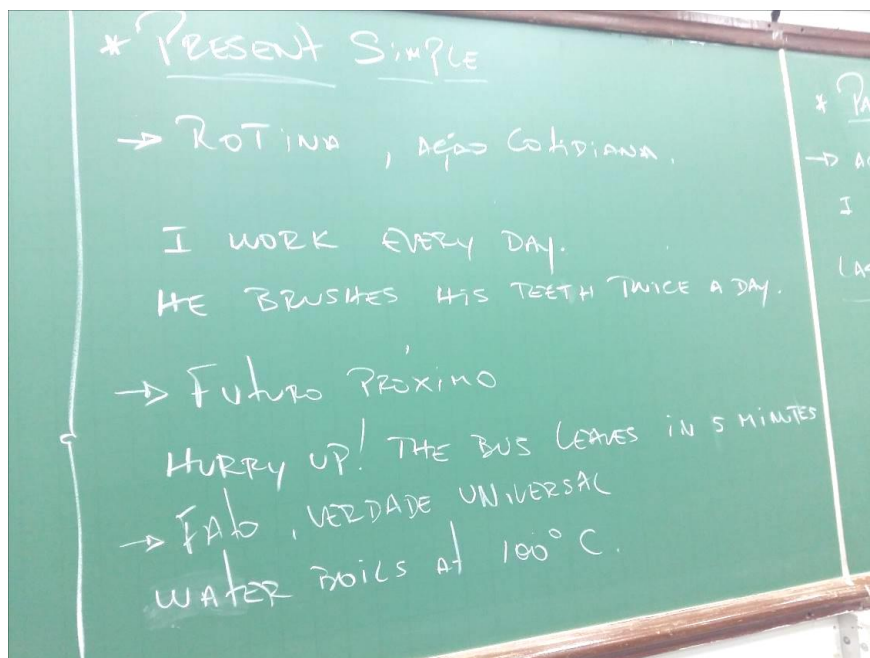 * PRESENT SIMPLE
→ ROTINA, AÇÃO COTIDIANA.
I WORK EVERY DAY.
HE BRUSHES HIS TEETH TWICE A DAY.
→ FUTURO PRÓXIMO
HURRY UP! THE BUS LEAVES IN 5 MINUTES
→ FATO, VERDADE UNIVERSAL
WATER BOILS AT 100°C.
*
→
I